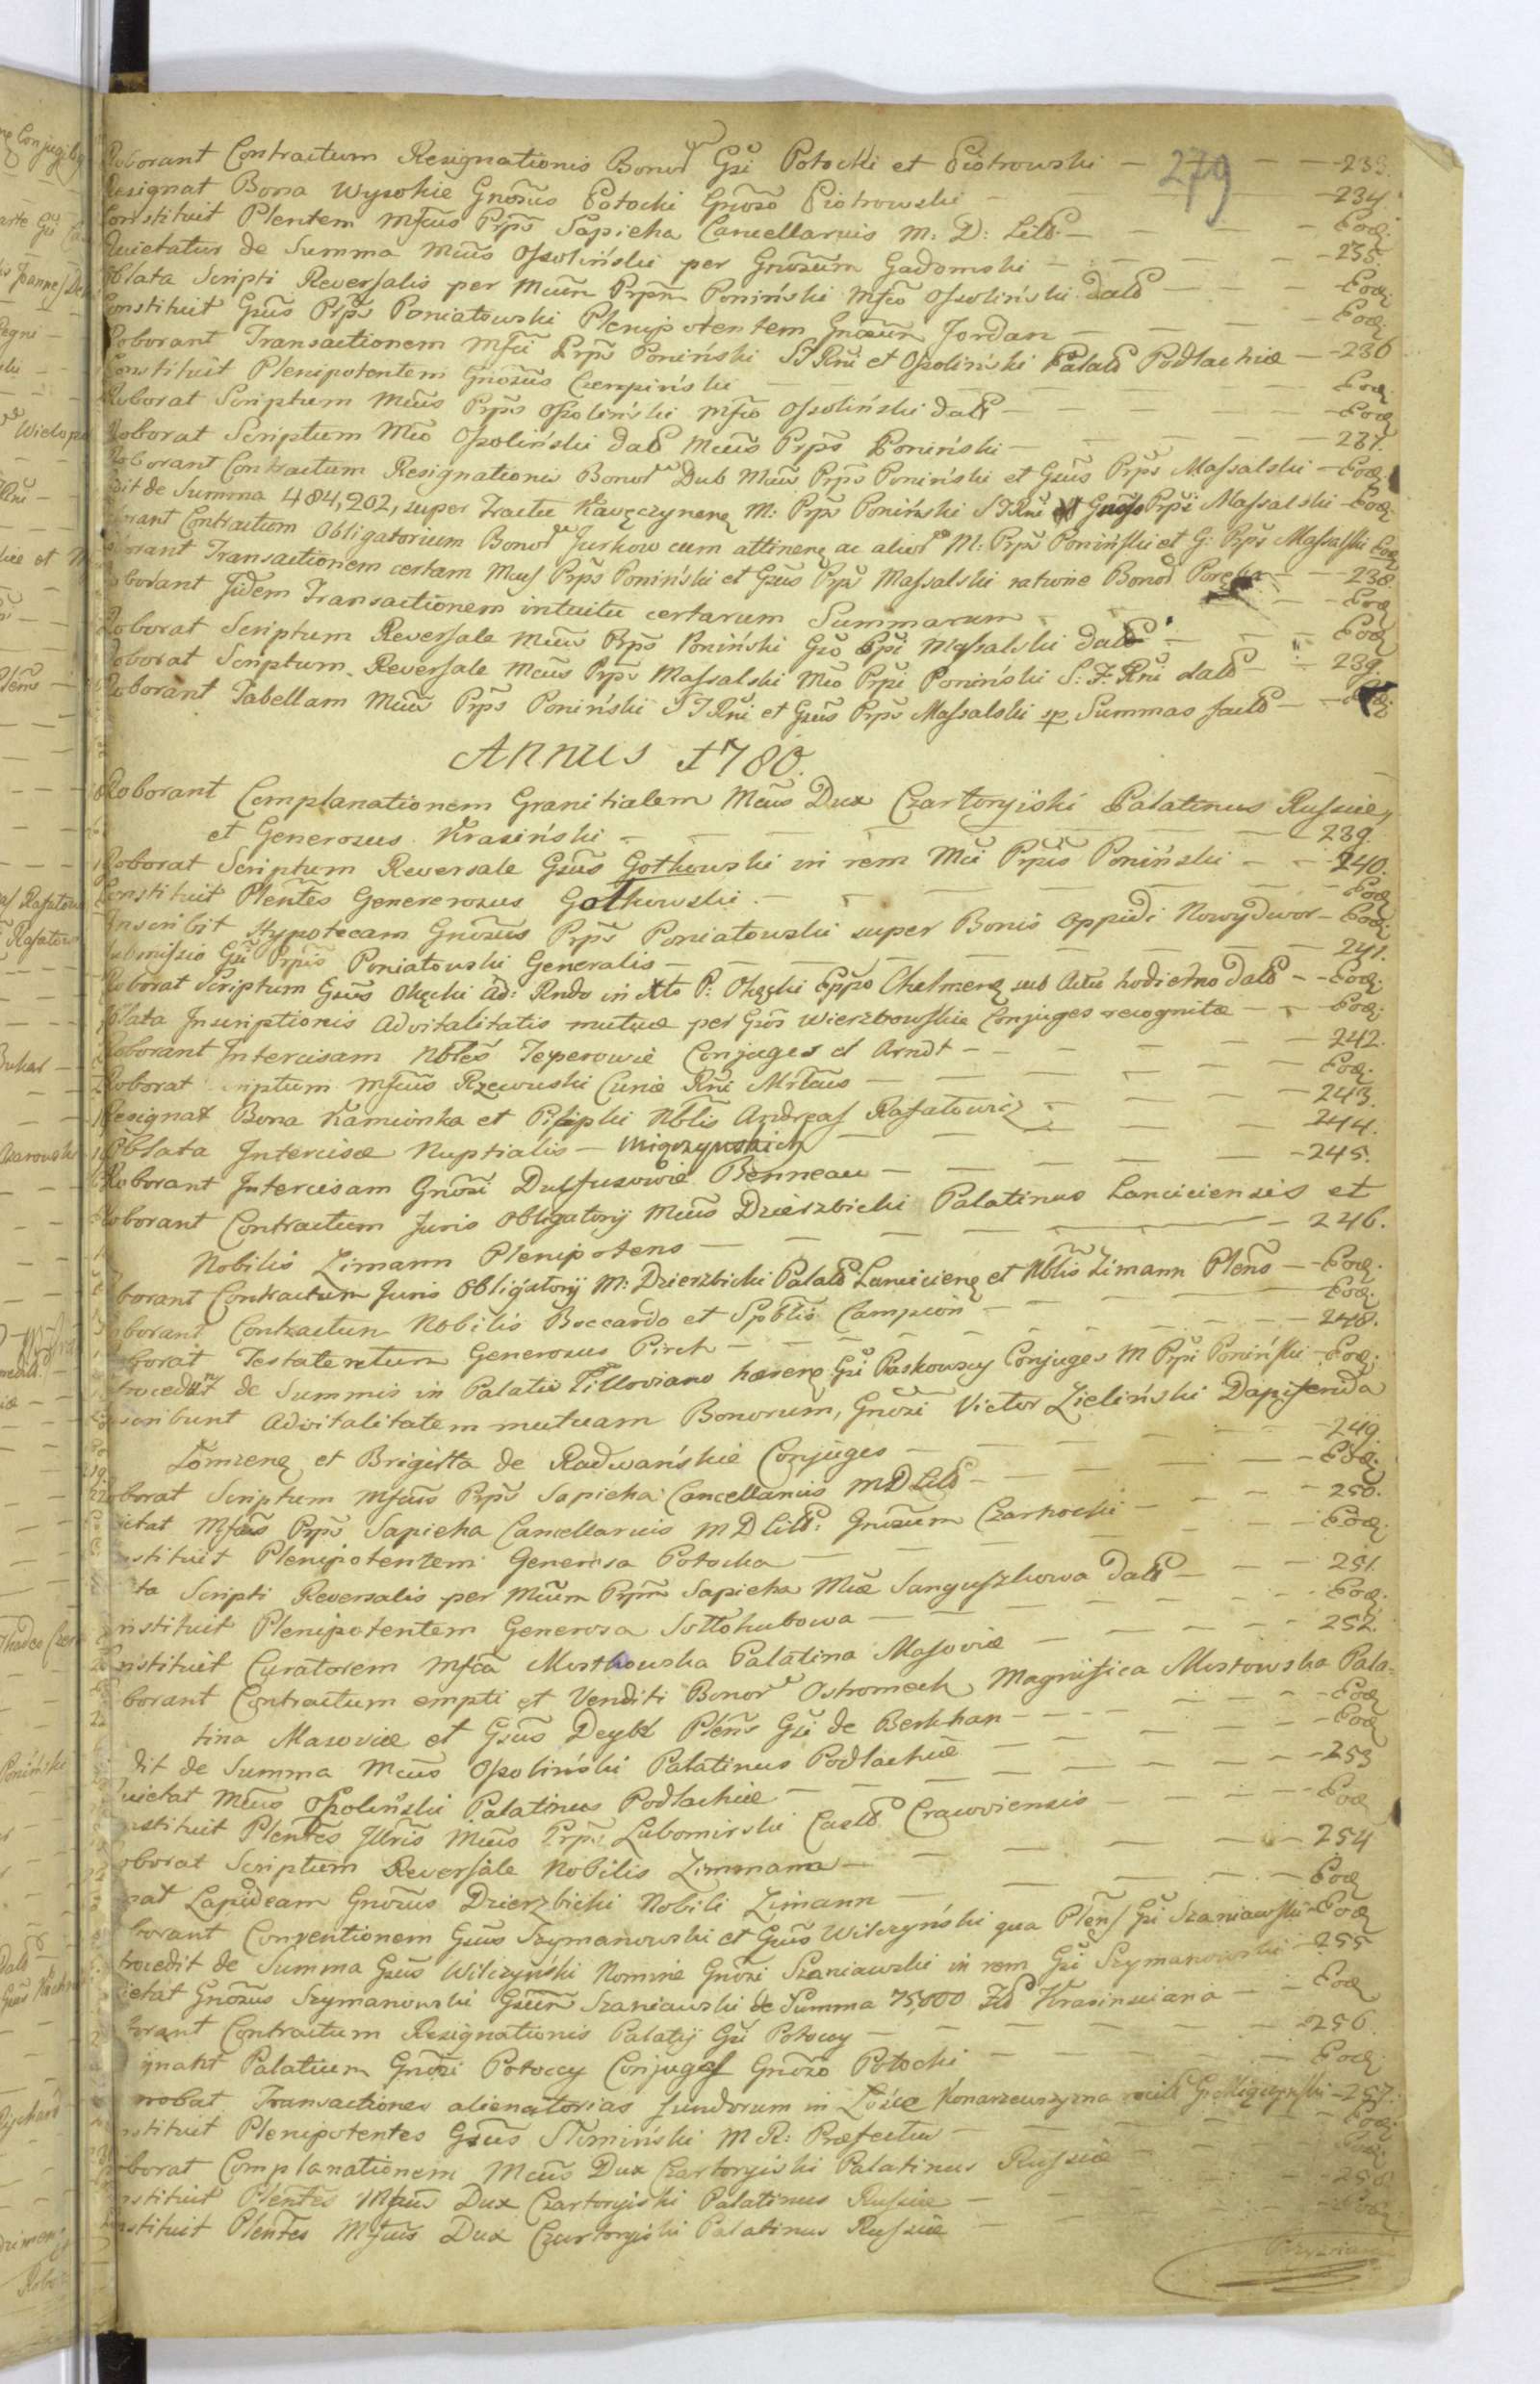 279
Roborant Contractum Resignationis Bonor Gsi Potocki et Piotrowski — 233.
Resignat Bona Wysokie Gnosus Potocki Gnoso Piotrowski — 234.
Constituit Plentem Mfcus Prps Sapieha Cancellarius M: D: Litt — Eod.
Quietatur de Summa Mcus Ossoliński per Gnosum Gadomski — 235.
Oblata Scripti Reversalis per Mcum Prpm Poniński Mfco Ossoliński datt — Eod.
Constituit Gsus Prps Poniatowski Plenipotentem Gnosum Jordan — Eod.
Roborant Transactionem Mfci Prps Poniński S T Rni et Ossoliński Palatt Podlachiæ — 236
Constituit Plenipotentem Gnosus Czempiński — Eod.
Roborat Scriptum Mcus Prps Ossoliński Mfco Ossoliński datt — Eod
Roborat Scriptum Mco Ossoliński datt Mcus Prps Poniński — 237.
Roborant Contractum Resignationis Bonor Dub Mcus Prps Poniński et Gsus Prps Massalski — Eod.
dit de Summa 484,202, super Tractu Kawęczynen M: Prps Poniński S T Rni Gnoso Prpi Massalski — Eod.
borant Contractum Obligatorium Bonor Jurkow cum attinen ac alior M: Prps Poniński et G: Prps Massalski Eod
borant Transactionem certam Mcus Prps Poniński et Gsus Prps Massalski ratione Bonor Poręba — 238.
Roborant Iidem Transactionem intuitu certarum Summarum — Eod
Roborat Scriptum Reversale Mcus Prps Poniński Gso Prpi Massalski datt — Eod
Roborat Scriptum Reversale Mcus Prps Massalski Mco Prpi Poniński S. T. Rni datt — 239.
Roborant Tabellam Mcus Prps Poniński S T Rni et Gsus Prps Massalski sp Summas factt — Eod.
Annus 1780.
Roborant Complanationem Granitialem Mcus Dux Czartoryiski Palatinus Russiæ,
et Generosus Krasiński — 239.
Roborat Scriptum Reversale Gsus Gothowski in rem Mci Prpis Poniński — 240.
Constituit Plentes Genererosus Gothowski — Eod
Inscribit Hypotecam Gnosus Prps Poniatowski super Bonis Oppidi Nowydwor — Eod.
Submissio Gsi Prpis Poniatowski Generalis — 241.
Roborat Scriptum Gsus Okęcki ad: Rndo in Xto P: Okęcki Eppo Chelmen sub Actu hodierno datt — Eod.
Oblata Inscriptionis Advitalitatis mutuæ per Gsos Wierzbowskie Conjuges recognitæ — Eod.
Roborant Intercisam Nbles Teperowie Conjuges et Arndt — 242.
Roborat Scriptum Mfcus Rzewuski Curiæ Rni Mrlcus — Eod.
Resignat Bona Kamionka et Pisipki Nblis Andreas Rafałowicz — 243.
Oblata Intercisæ Nuptialis — Miączyńskich — 244.
Roborant Intercisam Gnosi Dulfusowie Benneau — 245.
Roborant Contractum Juris Obligatorij Mcus Dzierzbicki Palatinus Lanciciensis et
Nobilis Zimann Plenipotens — 246.
borant Contractum Juris Obligatorij M: Dzierzbicki Palatt Lancicien et Nblis Zimann Plens — Eod.
borant Contractum Nobilis Boccardo et Spblis Campion — Eod.
borat Testatentum Generosus Pirch — 248.
trocedunt de Summis in Palatio Filloviano hæren Gsi Paskowscy Conjuges M Prpi Poniński — Eod.
scribunt Advitalitatem mutuam Bonorum, Gnosi Victor Zieliński Dapiferida
Łomzen et Brigitta de Radwańskie Conjuges — 249.
borat Scriptum Mfcus Prps Sapieha Cancellarius M D Litt — Eod.
ietat Mfcus Prps Sapieha Cancellarius M D Litt: Gnosum Czarnocki — 250.
stituit Plenipotentem Generosa Potocka — Eod.
ta Scripti Reversalis per Mcum Prpm Sapieha Mcæ Sanguszkowa datt — 251.
nstituit Plenipotentem Generosa Sołłohubowa — Eod.
nstituit Curatorem Mfca Mostkowska Palatina Masoviæ — 252.
borant Contractum empti et Venditi Bonor Ostromech Magnifica Mostowska Pala-
tina Masoviæ et Gsus Deybl Plens Gsi de Berkhan — Eod
dit de Summa Mcus Ossoliński Palatinus Podlachiæ — Eod
Quietat Mcus Ossoliński Palatinus Podlachiæ — 253
nstituit Plentes Illris Mcus Prps Lubomirski Castt Cracoviensis — Eod
oborat Scriptum Reversale Nobilis Zimmama — 254
nat Lapideam Gnosus Dzierzbicki Nobili Zimann — Eod
borant Conventionem Gsus Szymanowski et Gsus Wilczyński qua Plens Gsi Szaniawski — Eod
trocedit de Summa Gsus Wilczyński Nomine Gnosi Szaniawski in rem Gsi Szymanowski — 255
ietat Gnosus Szymanowski Gsum Szaniawski de Summa 75000 Złt Krasinsciana — Eod
borant Contractum Resignationis Palatij Gsi Potoccy — 256.
ignant Palatium Gnosi Potoccy Conjuges Gnoso Potocki — Eod.
robat Transactiones alienatorias fundorum in Konarzewszyzna Gs Miączyński — 257.
nstituit Plenipotentes Gsus Słomiński M R: Præfectus — Eod.
oborat Complanationem Mcus Dux Czartoryiski Palatinus Russiæ — Eod.
nstituit Plentes Mfcus Dux Czartoryiski Palatinus Russiæ — 258
nstituit Plentes Mfcus Dux Czartoryiski Palatinus Russiæ — Eod.